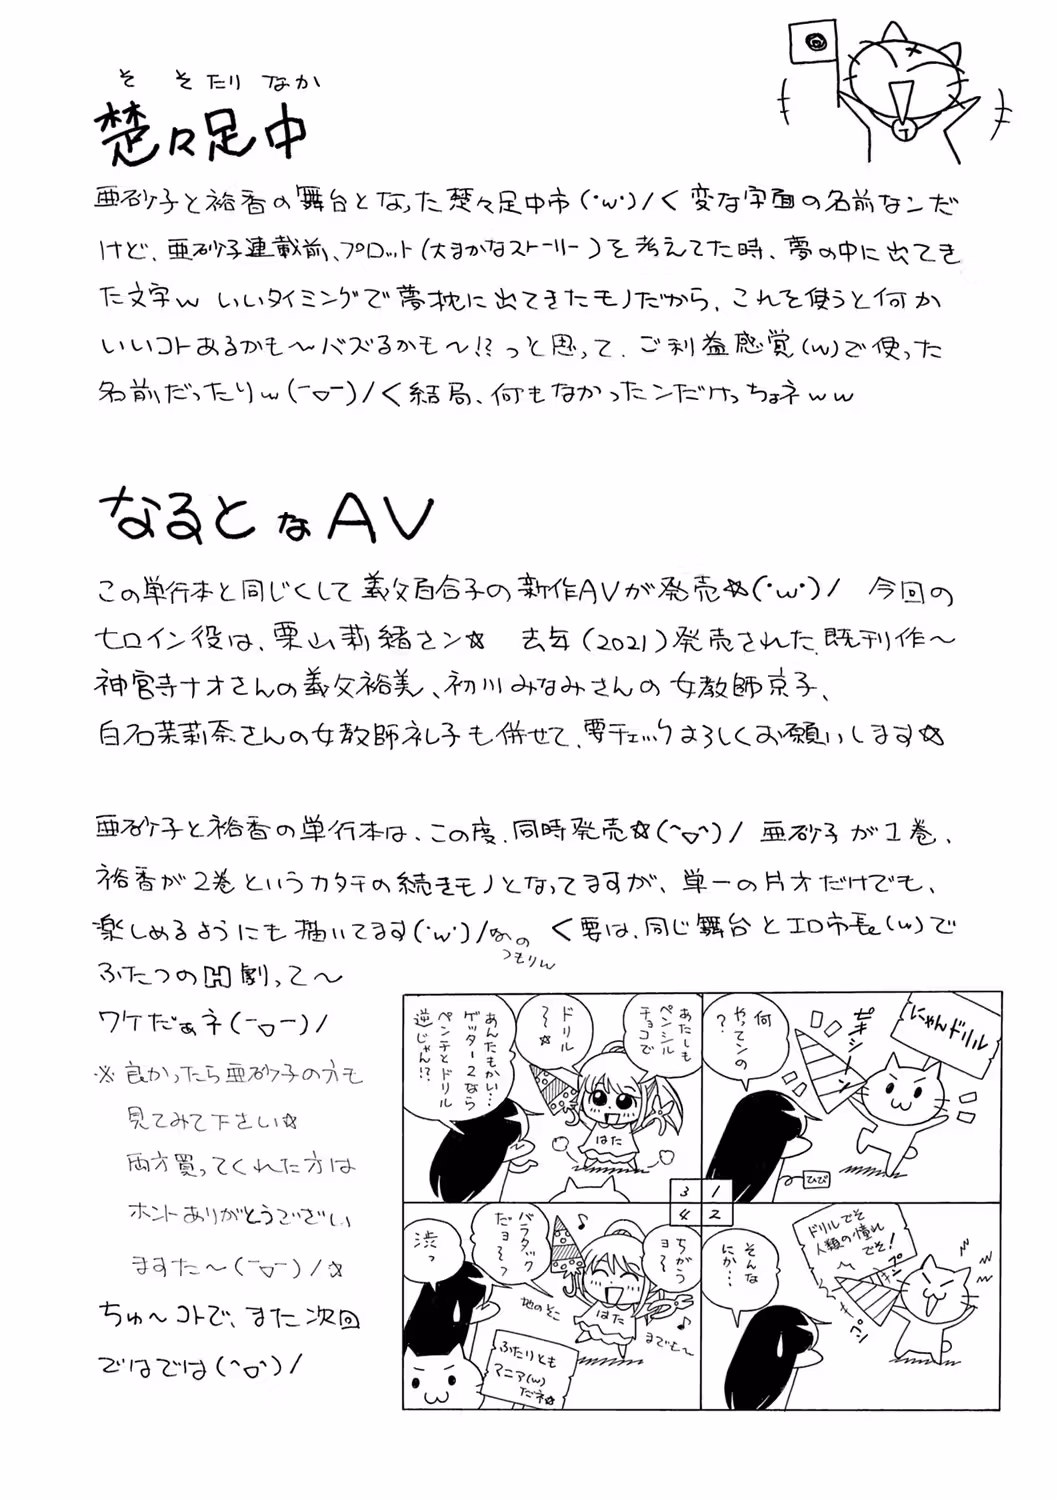 そ そたり なか
楚々足中
亜砂子と裕香の舞台となった楚々足中市(･w･)/く変な字面の名前なンだ
けど、亜砂子連載前、プロット(大まかなストーリー)を考えてた時、夢の中に出てき
た文字w いいタイミングで夢枕に出てきたモノだから、これを使うと何か
いいコトあるかも〜バズるかも〜!?っと思って、ご利益感覚(w)で使った
名前だったりw(ーロー)/く結局、何もなかったンだけっちょネww
なるとなAV
この単行本と同じくして義父百合子の新作AVが発売☆(･w･)/ 今回の
ヒロイン役は、栗山莉緒さン☆ 去年(2021)発売された既刊作〜
神宮寺ナオさんの義父裕美、初川みなみさんの女教師京子、
白石茉莉奈さんの女教師礼子も併せて、要チェックよろしくお願いします☆
亜砂子と裕香の単行本は、この度、同時発売☆(^ロ^)/ 亜砂子が1巻、
裕香が2巻というカタチの続きモノとなってますが、単一の片才だけでも、
楽しめるようにも描いてます(･w･)/なのつもりw く要は、同じ舞台とエロ市長(w)で
ふたつのH劇って〜
ワケだぁネ(ーロー)/
※良かったら亜砂子の方も
見てみて下さい☆
両方買ってくれた方は
ホントありがとうござい
ますた〜(ーロー)/☆
ちゅ〜コトで、また次回
ではでは(^ロ^)/
にゃんドリル
ギュイーン
何
やってンの
?
ひび
1
2
3
4
ドリルでそ
人類の憧れ
でそ!
そんな
にか…
あたしも
ペンシル
チョコで
ドリル
〜☆
はた
あんたもかい…
ゲッター2なら
ペンチとドリル
逆じゃん!?
ちがう
ヨ〜
バラタック
だヨ〜っ
はた
地のそこ
までも〜
渋っ
ふたりとも
マニア(w)
だネ☆